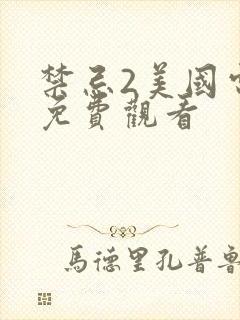 禁忌2美國
免費觀看
馬德里孔普魯